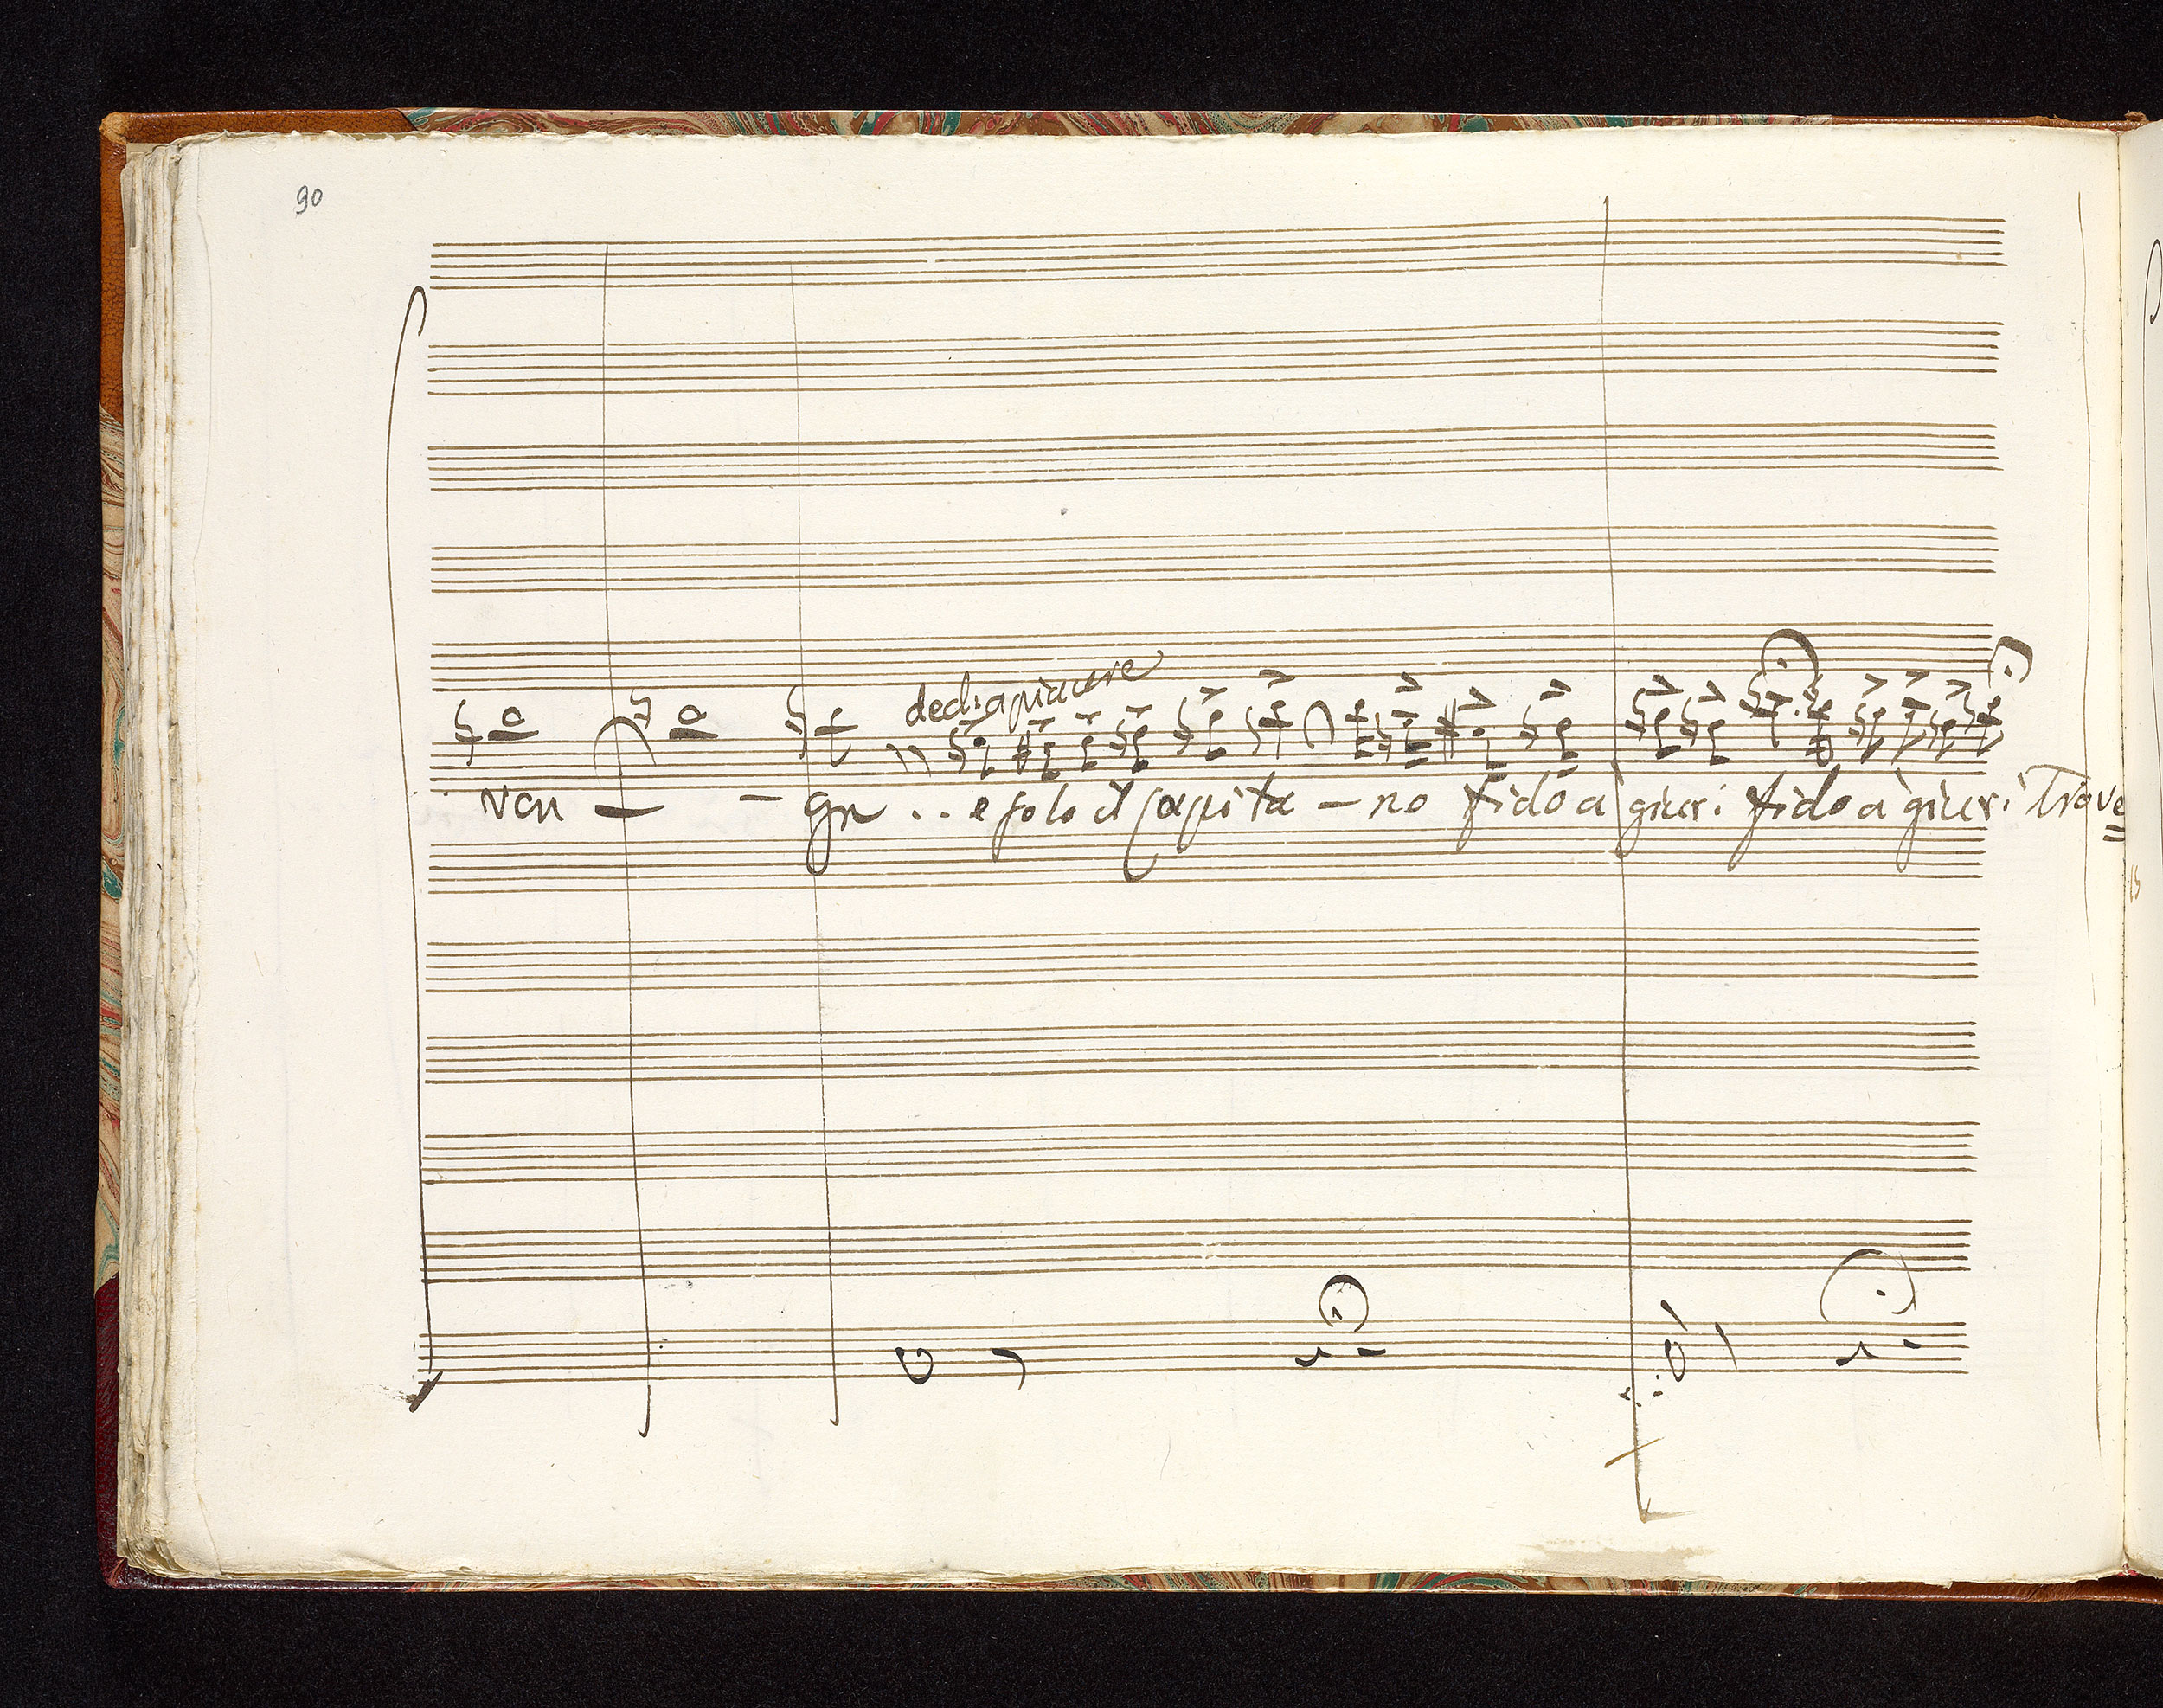 90
decl: a piacere
ven - - ga .. e solo il Capita - no fido a' giuri fido a' giuri trove